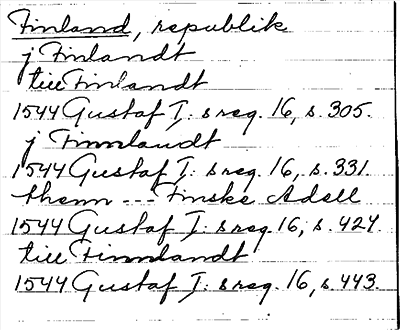 Finland, republik
j Finlandt
till Finlandt
1544 Gustaf I: s reg. 16, s. 305.
j Finnlandt
1544 Gustaf I: s reg. 16, s. 331.
them --- Finske Adell
1544 Gustaf I: s reg. 16, s. 424.
till Finnlandt
1544 Gustaf I: s reg. 16, s. 443.